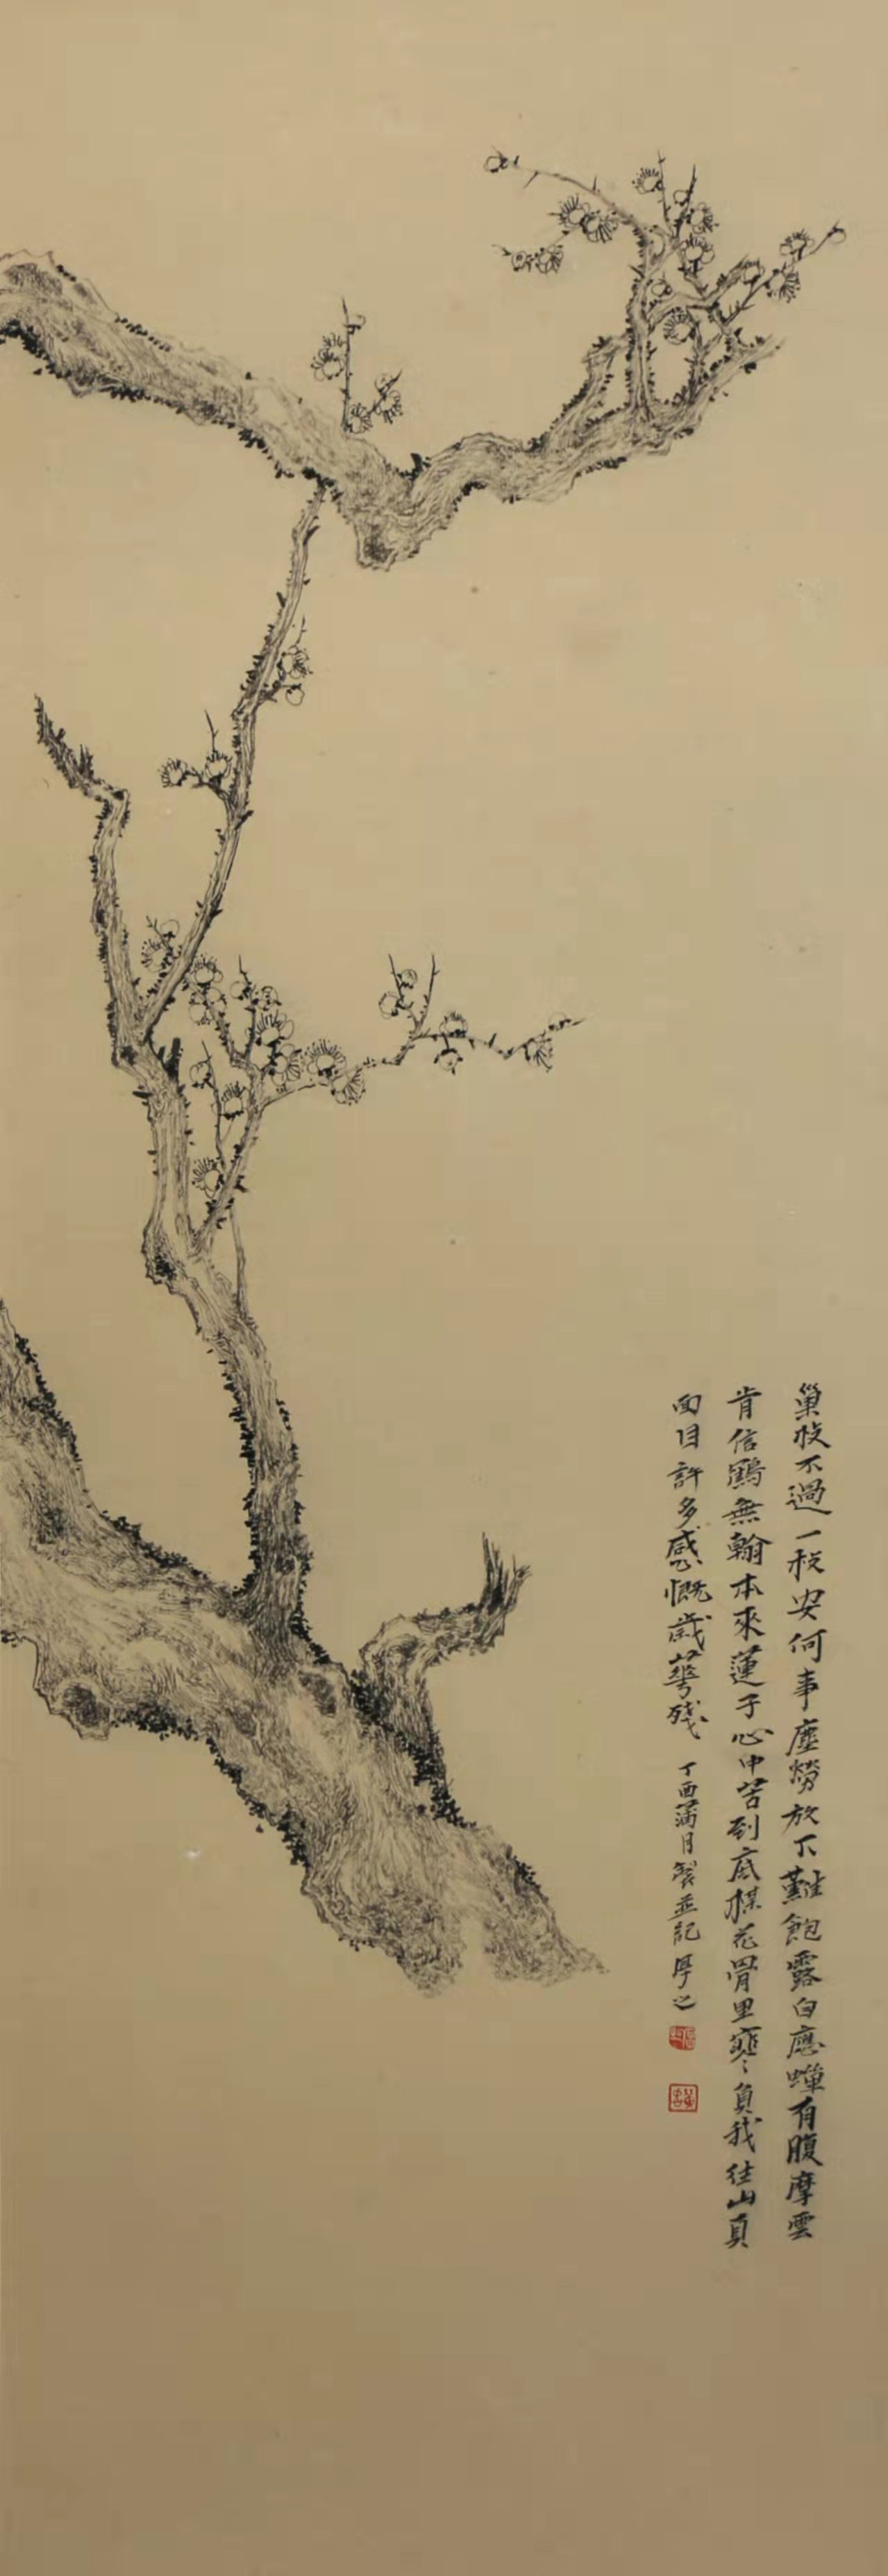 巢枝不過一枝安何事塵勞放下難飽露白應蟬有腹摩雲
肯信鷃無翰本來蓮子心中苦到底楳花骨里寒〻負我住山真
面目許多感慨歲華殘 丁酉滿月製並記厚之